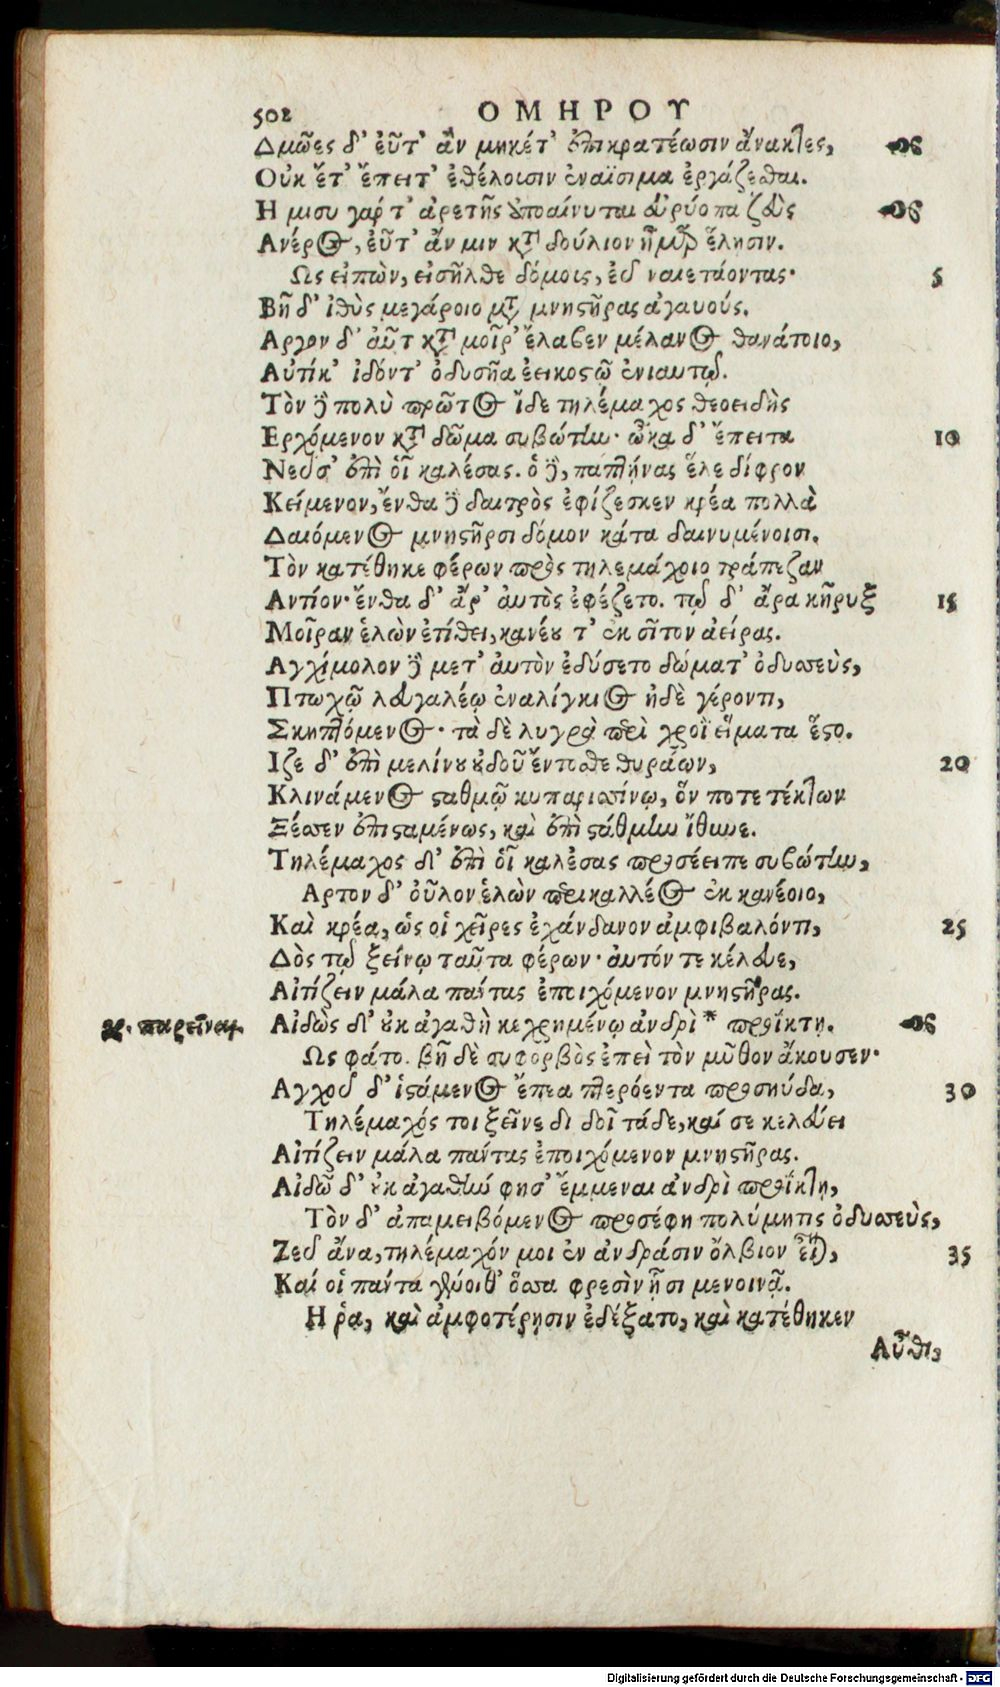 502 ΟΜΗΡΟΥ
Δμῶες δ' εὖτ' ἂν μηκέτ' ἐπικρατέωσιν ἄνακτες,
Οὐκ ἔτ' ἔπειτ' ἐθέλουσιν ἐναίσιμα ἐργάζεσθαι.
Ημισυ γάρ τ' ἀρετῆς ἀποαίνυται εὐρύοπα ζεὺς
Ανέρος, εὖτ' ἄν μιν κατὰ δούλιον ἦμαρ ἕλησιν.
Ως εἰπὼν, εἰσῆλθε δόμοις, εὖ ναιετάοντας· 5
Βῆ δ' ἰθὺς μεγάροιο μετὰ μνηστῆρας ἀγαυούς.
Αργον δ' αὖτ κατὰ μοῖρ' ἔλαβεν μέλανος θανάτοιο,
Αὐτίκ' ἰδόντ' ὀδυσῆα ἐεικοστῷ ἐνιαυτῷ.
Τὸν δὲ πολὺ πρῶτος ἴδε τηλέμαχος θεοειδὴς
Ερχόμενον κατὰ δῶμα συβώτην· ὦκα δ' ἔπειτα 10
Νεῦσ' ἐπὶ οἷ καλέσας. ὁ δὲ, παπτήνας ἕλε δίφρον
Κείμενον, ἔνθα δὲ δαιτρὸς ἐφίζεσκεν κρέα πολλὰ
Δαιόμενος μνηστῆρσι δόμον κάτα δαινυμένοισι.
Τὸν κατέθηκε φέρων πρὸς τηλεμάχοιο τράπεζαν
Αντίον· ἔνθα δ' ἄρ' αὐτὸς ἐφέζετο. τῷ δ' ἄρα κῆρυξ 15
Μοῖραν ἑλὼν ἐτίθει, κανέου τ' ἐκ σῖτον ἀείρας.
Αγχίμολον δὲ μετ' αὐτὸν ἐδύσετο δώματ' ὀδυσσεὺς,
Πτωχῷ λευγαλέῳ ἐναλίγκιος ἠδὲ γέροντι,
Σκηπτόμενος· τὰ δὲ λυγρὰ περὶ χροῒ εἵματα ἕστο.
Ιζε δ' ἐπὶ μελίνου οὐδοῦ ἔντοσθε θυράων, 20
Κλινάμενος σταθμῷ κυπαρισσίνῳ, ὅν ποτε τέκτων
Ξέσσεν ἐπισταμένως, καὶ ἐπὶ στάθμην ἴθυνε.
Τηλέμαχος δ' ἐπὶ οἷ καλέσας προσέειπε συβώτην,
Αρτον δ' οὖλον ἑλὼν περικαλλέος ἐκ κανέοιο,
Καὶ κρέα, ὥς οἱ χεῖρες ἐχάνδανον ἀμφιβαλόντι, 25
Δὸς τῷ ξείνῳ ταῦτα φέρων· αὐτόν τε κέλευε,
Αἰτίζειν μάλα πάντας ἐποιχόμενον μνηστῆρας.
γρ. παρεῖναι. Αἰδὼς δ' οὐκ ἀγαθὴ κεχρημένῳ ἀνδρὶ * προΐκτῃ.
Ως φάτο. βῆ δὲ συφορβὸς ἐπεὶ τὸν μῦθον ἄκουσεν·
Αγχοῦ δ' ἱστάμενος ἔπεα πτερόεντα προσηύδα, 30
Τηλέμαχός τοι ξεῖνε διδοῖ τάδε, καί σε κελεύει
Αἰτίζειν μάλα πάντας ἐποιχόμενον μνηστῆρας.
Αἰδῶ δ' οὐκ ἀγαθὴν φησ' ἔμμεναι ἀνδρὶ προΐκτῃ,
Τὸν δ' ἀπαμειβόμενος προσέφη πολύμητις ὀδυσσεὺς,
Ζεῦ ἄνα, τηλέμαχόν μοι ἐν ἀνδράσιν ὄλβιον εἶναι, 35
Καί οἱ πάντα γένοιθ' ὅσσα φρεσὶν ᾗσι μενοινᾷ.
Η ῥα, καὶ ἀμφοτέρῃσιν ἐδέξατο, καὶ κατέθηκεν
Αὖθι,
Digitalisierung gefördert durch die Deutsche Forschungsgemeinschaft - DFG